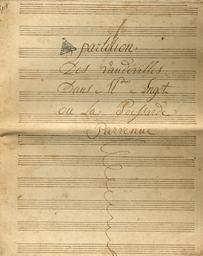 partition
Des Vaudevilles
Dans M.de Angot
ou La Poissarde
Parvenue